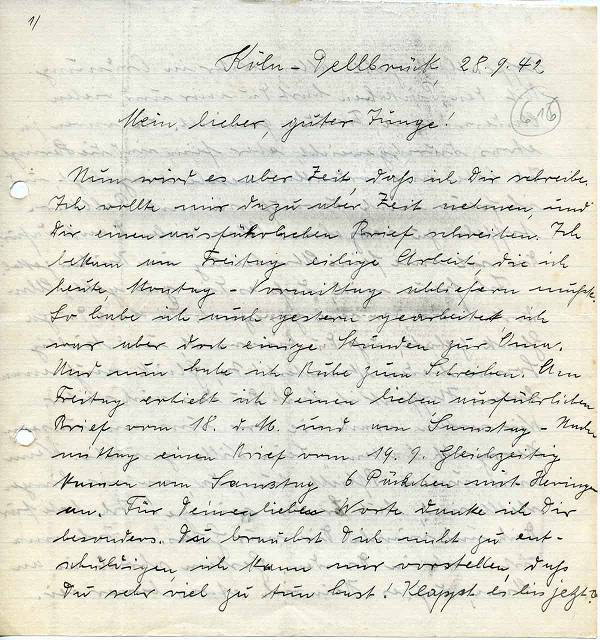 1/
Köln-Dellbrück, 28.9.42
616
Mein lieber, guter Junge!
Nun wird es aber Zeit, daß ich Dir schreibe.
Ich wollte mir dazu aber Zeit nehmen, und
Dir einen ausführlichen Brief schreiben. Ich
bekam am Freitag eilige Arbeit, die ich
heute Montag - Vormittag abliefern mußte.
So habe ich auch gestern gearbeitet, ich
war aber doch einige Stunden zur Oma.
Und nun habe ich Ruhe zum Schreiben. Am
Freitag erhielt ich Deinen lieben ausführlichen
Brief vom 18. d. M. und am Samstag - Nach-
mittag einen Brief vom 19. 9. Gleichzeitig
kamen am Samstag 6 Päckchen mit Heringen
an. Für Deine lieben Worte danke ich Dir
besonders. Du brauchst Dich nicht zu ent-
schuldigen, ich kann mir vorstellen, daß
Du sehr viel zu tun hast! Klappt es bis jetzt?